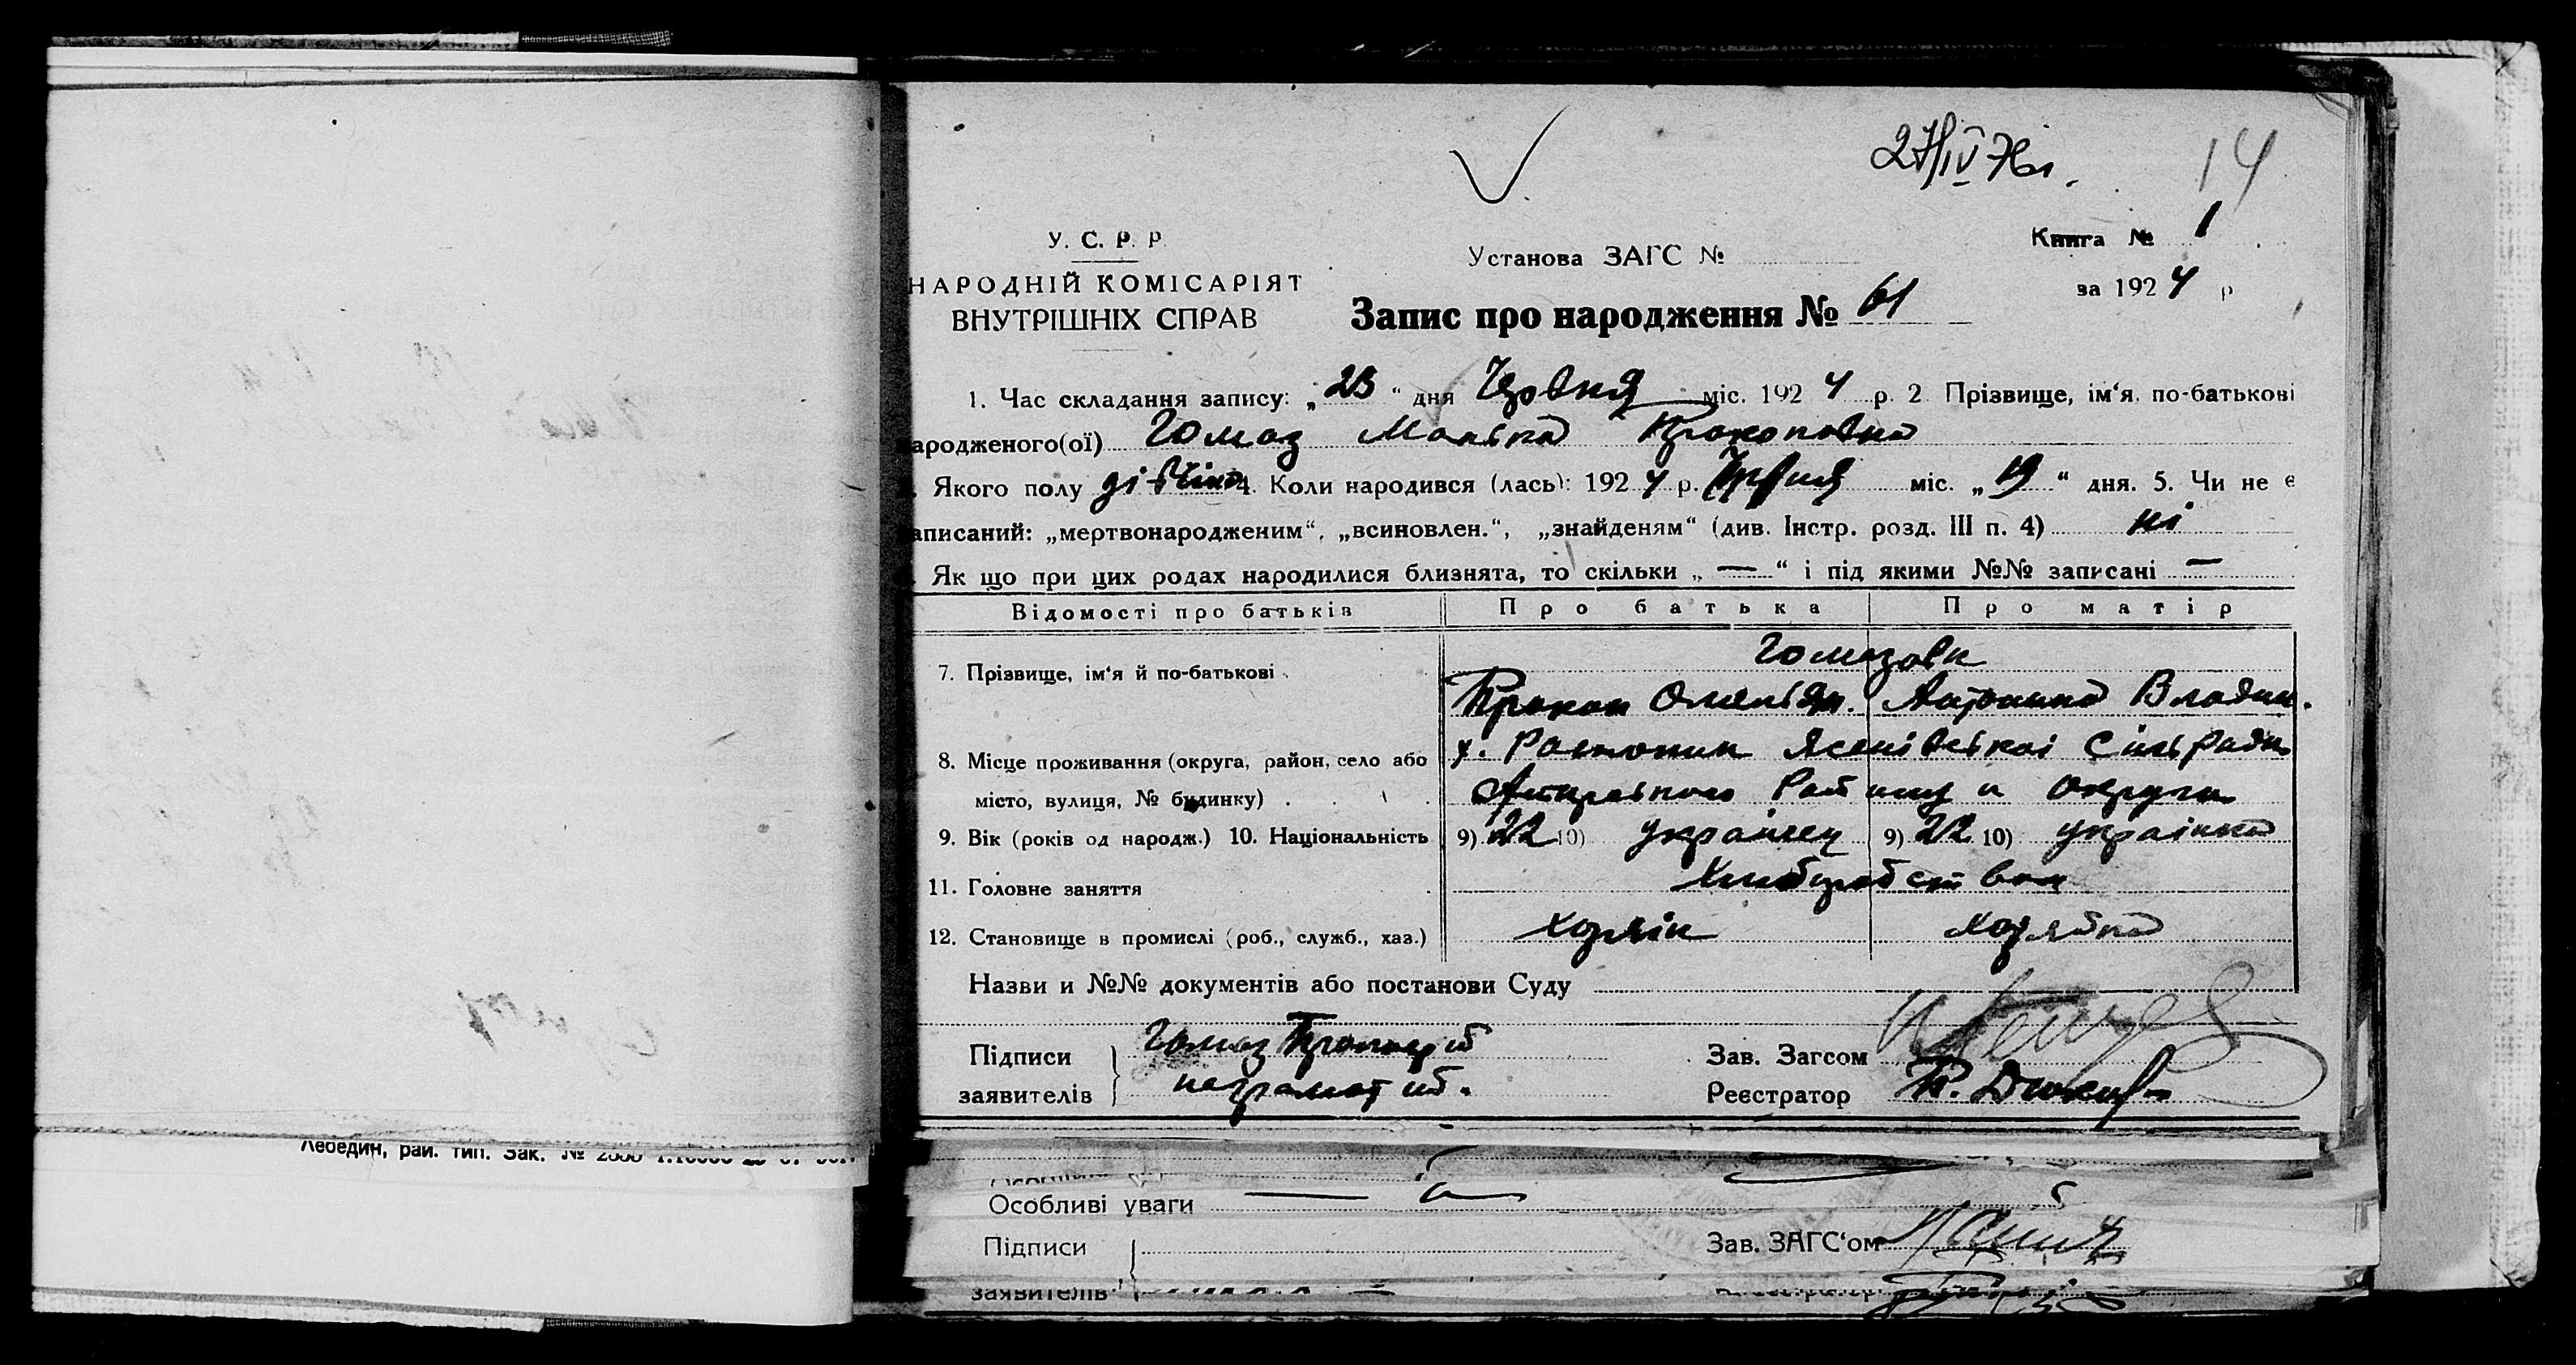 27/IV 76г.
14
У. С. Р. Р.
НАРОДНІЙ КОМІСАРІЯТ
ВНУТРІШНІХ СПРАВ
Установа ЗАГС №
Книга № 1
за 1924 р
Запис про народження № 61
1. Час складання запису: „23“ дня Червня міс. 1924 р. 2 Прізвище, ім‘я, по-батькові
ародженого(ої) Гомоз Прокоповна
. Якого полу дівчина 4. Коли народився (лась): 1924 р. Червня міс. „19“ дня. 5. Чи не є
аписаний: „мертвонародженим“, „всиновлен.“, „знайденям“ (див. Інстр. розд. III п. 4) ні
. Як що при цих родах народилися близнята, то скільки „—“ і під якими №№ записані —
Відомості про батьків Про батька Про матір
7. Прізвище, ім‘я й по-батькові .
Гомозови
Прокоп Омельян. Антонина Владим.
8. Місце проживання (округа, район, село або
місто, вулиця, № будинку) . . .
х. Ясенівської Сільради
Району и Округи
9. Вік (років од народж.) 10. Національність 9) 22 10) Українец 9) 22 10) українка
11. Головне заняття . Хлиборобством
12. Становище в промислі (роб., служб., хаз.) хозяін хозяйка
Назви и №№ документів або постанови Суду
Підписи
заявителів
Гомоз
неграмотий.
Зав. Загсом
Реєстратор
Лебедин, рай. тип. Зак. №
Особливі уваги
Підписи
Зав. ЗАГС‘ом
заявителів